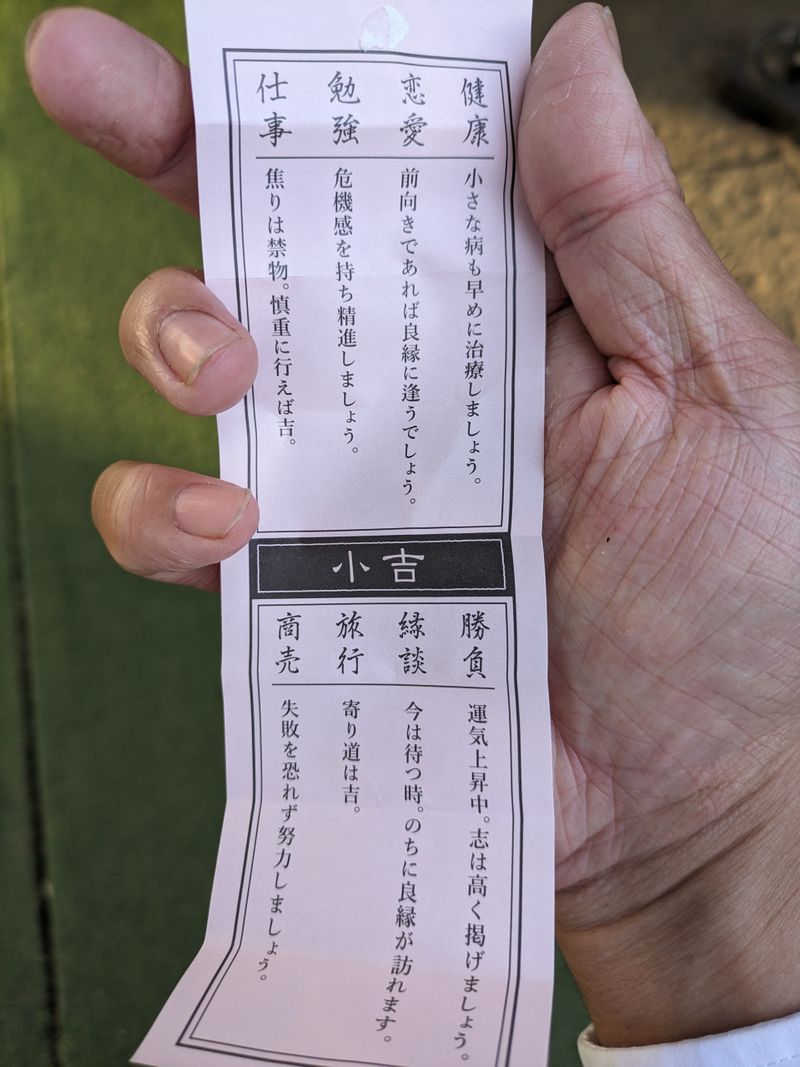 健康
小さな病も早めに治療しましょう。
恋愛
前向きであれば良縁に逢うでしょう。
勉強
危機感を持ち精進しましょう。
仕事
焦りは禁物。慎重に行えば吉。
小吉
勝負
運気上昇中。志は高く掲げましょう。
縁談
今は待つ時。のちに良縁が訪れます。
旅行
寄り道は吉。
商売
失敗を恐れず努力しましょう。